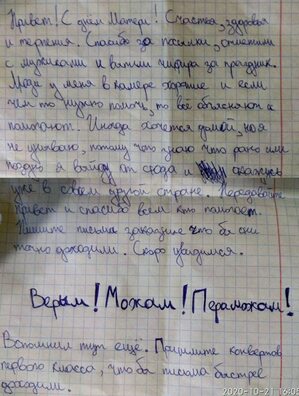 Привет! С днем Матери! Счастья, здоровья
и терпения. Спасибо за посылки, отметили
с мужиками и взяли чифира за праздник.
Люди у меня в камере хорошие и если
чем то нужно помочь, то все объясняют и
помогают. Иногда хочется домой, но я
не унываю, потому что знаю что рано или
поздно я выйду от сюда и окажусь
уже в совсем другой стране. Передавайте
привет и спасибо всем кто помогает.
Пишите письма заказные что бы они
точно доходили. Скоро увидимся.
Верым! Можам! Пераможам!
Вспомнил тут ещё. Пришлите конвертов
первого класса, что бы письма быстрее
доходили.
2020-10-21 16:05